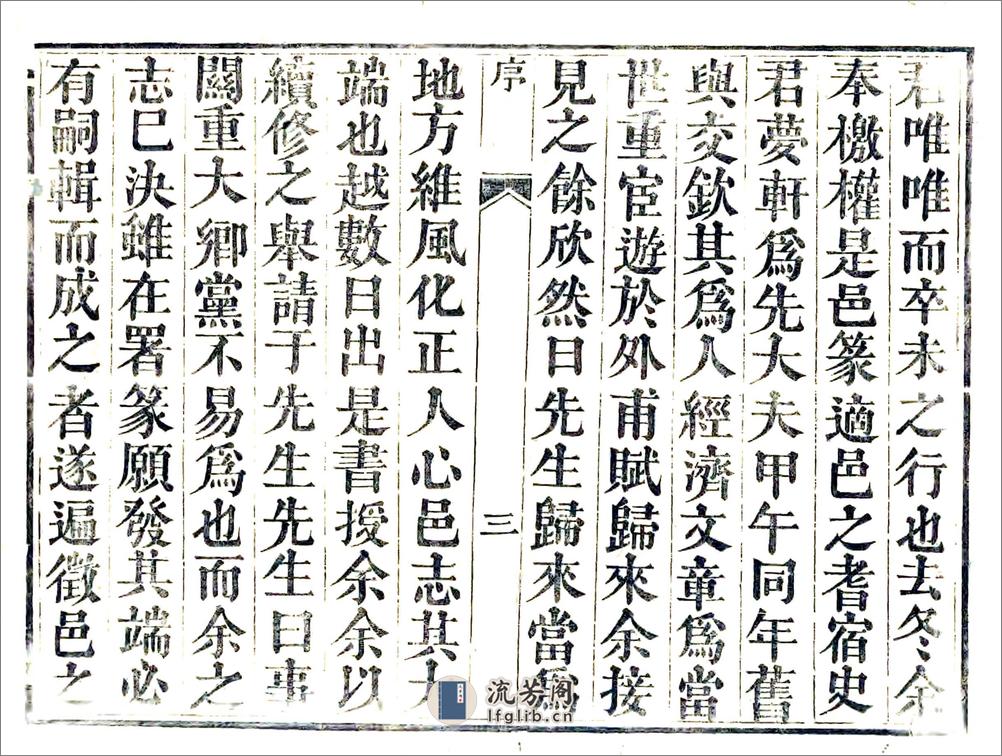 君唯唯而卒未之行也去冬余
奉檄權是邑篆適邑之耆宿史
君夢軒爲先大夫甲午同年舊
與交欽其爲人經濟文章爲當
世重宦遊於外甫賦歸來余接
見之餘欣然曰先生歸來當爲
序
三
地方維風化正人心邑志其大
端也越數日出是書授余余以
續修之舉請于先生先生曰事
關重大鄉黨不易爲也而余之
志已決雖在署篆願發其端必
有嗣輯而成之者遂遍徵邑之
流芳阁
lfglib.cn